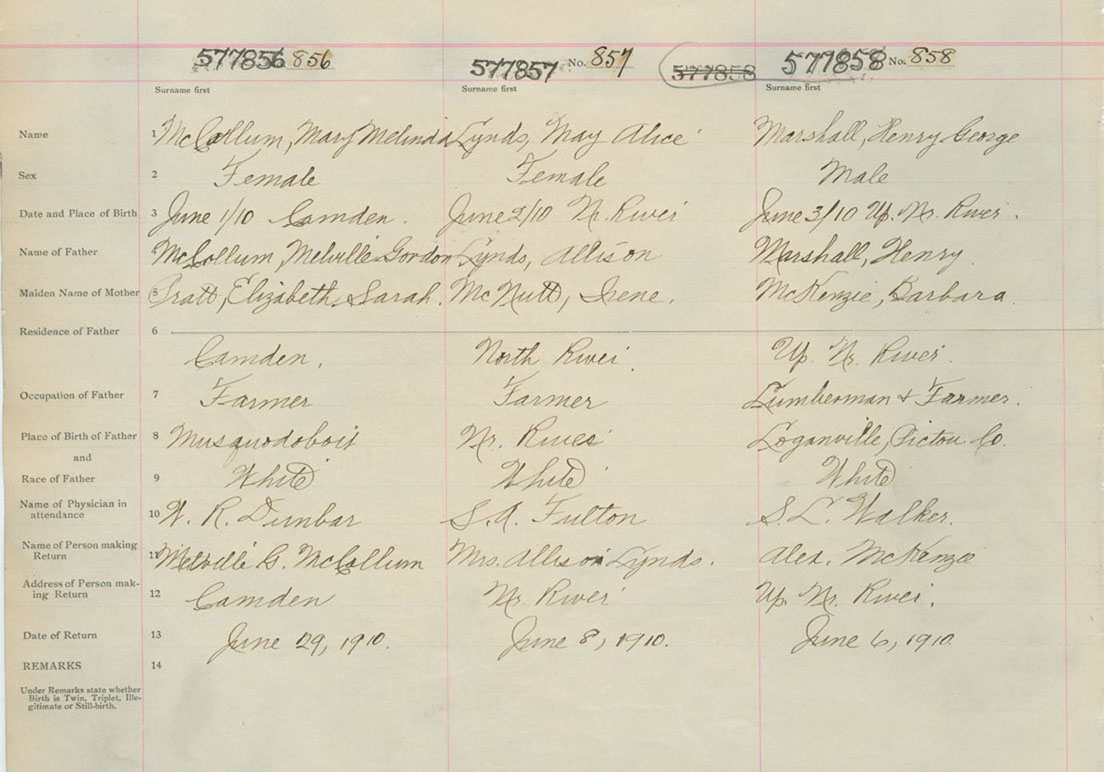 577856 856 577857 No. 857 577858 577858 No. 858
Surname first Surname first Surname first
Name 1 McCollum, Mary Melinda Lynds, May Alice Marshall, Henry George
Sex 2 Female Female Male
Date and Place of Birth 3 June 1/10 Camden. June 2/10 Nr. River June 3/10 Up. Nr. River.
Name of Father 4 McCollum, Melville Gordon Lynds, Allison Marshall, Henry
Maiden Name of Mother 5 Pratt, Elizabeth Sarah. McNutt, Irene. McKenzie, Barbara.
Residence of Father 6
Camden. North River. Up. Nr. River.
Occupation of Father 7 Farmer Farmer Lumberman & Farmer.
Place of Birth of Father 8 Musquodoboit Nr. River Loganville, Pictou Co.
and
Race of Father 9 White White White
Name of Physician in
attendance 10 W. R. Dunbar S. A. Fulton S. L. Walker.
Name of Person making
Return 11 Melville G. McCollum Mrs. Allison Lynds. Alex. McKenzie
Address of Person mak-
ing Return 12 Camden Nr. River Up. Nr. River.
Date of Return 13 June 29, 1910. June 8, 1910. June 6, 1910
REMARKS 14
Under Remarks state whether
Birth is Twin, Triplet, Ille-
gitimate or Still-birth.